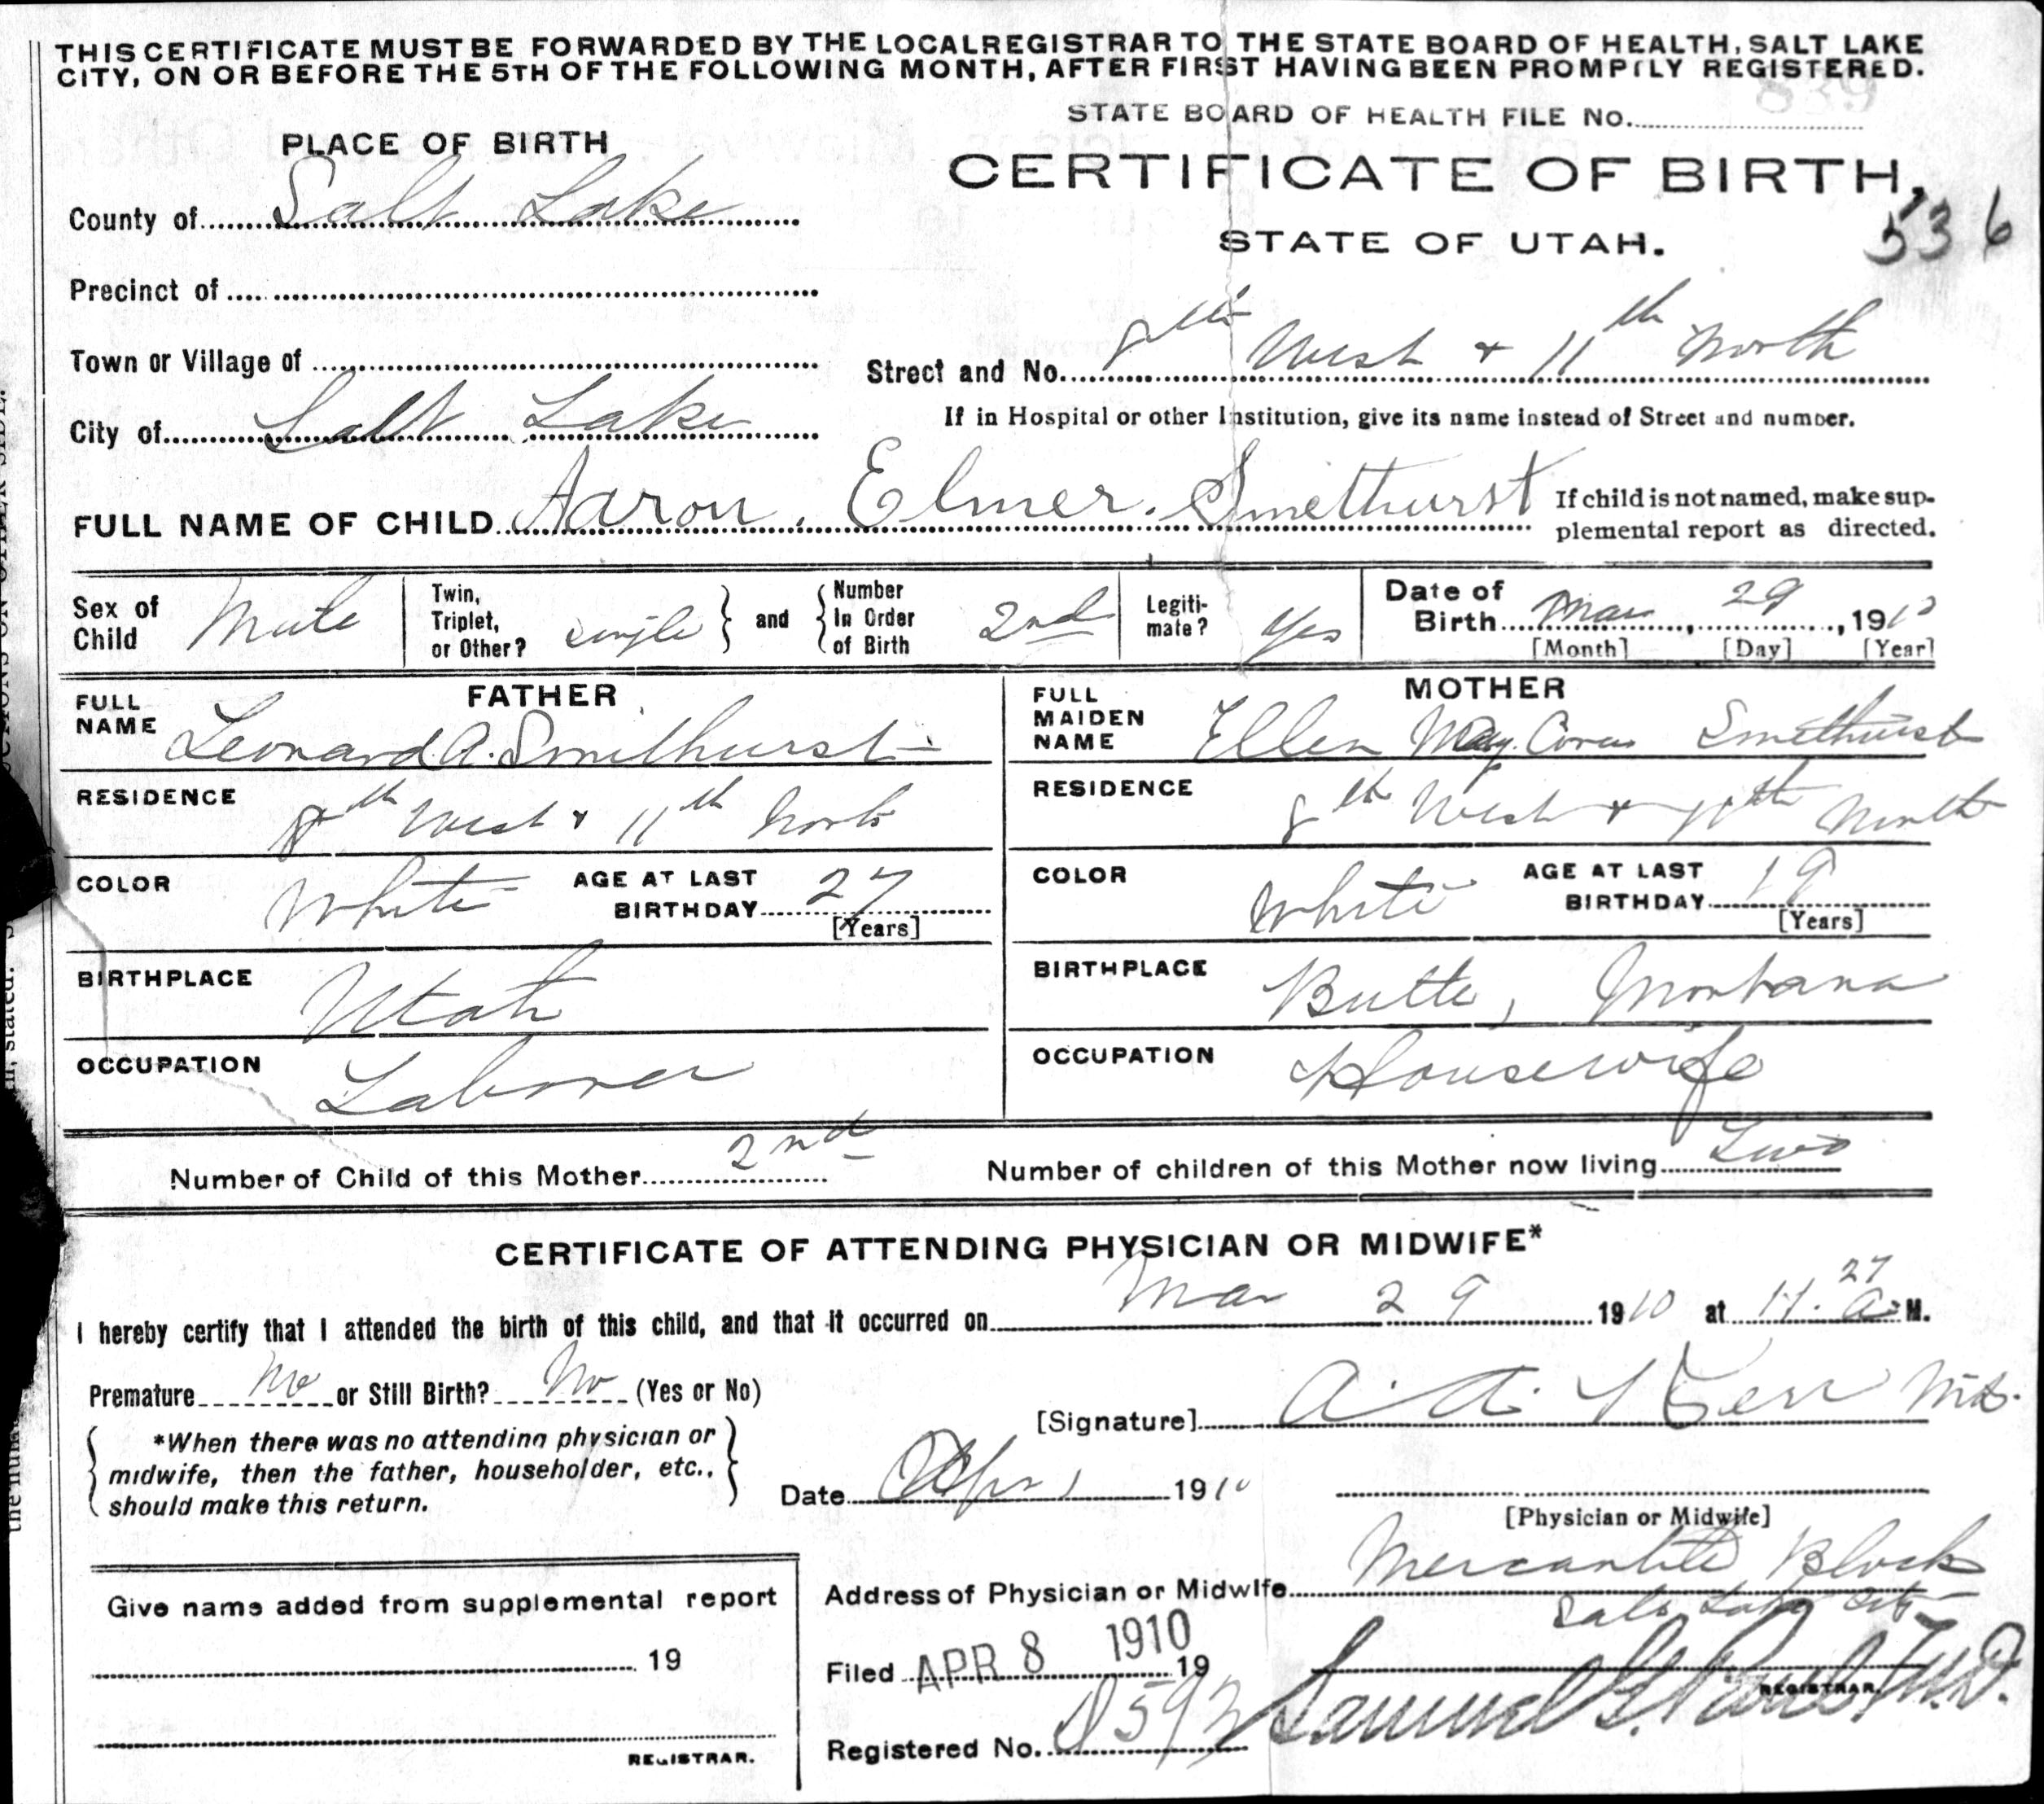 THIS CERTIFICATE MUST BE FORWARDED BY THE LOCAL REGISTRAR TO THE STATE BOARD OF HEALTH, SALT LAKE
CITY, ON OR BEFORE THE 5TH OF THE FOLLOWING MONTH, AFTER FIRST HAVING BEEN PROMPTLY REGISTERED.
STATE BOARD OF HEALTH FILE No. 839
PLACE OF BIRTH
CERTIFICATE OF BIRTH,
County of Salt Lake
STATE OF UTAH.
536
Precinct of
Town or Village of
Street and No. 8th West + 11th North
City of Salt Lake
If in Hospital or other Institution, give its name instead of Street and number.
FULL NAME OF CHILD Aaron. Elmer. Smethurst
If child is not named, make sup-
plemental report as directed.
Sex of Child Male
Twin, Triplet, or Other? single
and
Number In Order of Birth 2nd
Legiti-mate? Yes
Date of Birth Mar 29, 1910
[Month] [Day] [Year]
FATHER
FULL NAME Leonard A. Smethurst
RESIDENCE 8th West + 11th North
COLOR White AGE AT LAST BIRTHDAY 27
[Years]
BIRTHPLACE Utah
OCCUPATION Laborer
MOTHER
FULL MAIDEN NAME Ellen May Smethurst
RESIDENCE 8th West + 11th North
COLOR White AGE AT LAST BIRTHDAY 19
[Years]
BIRTHPLACE Butte, Montana
OCCUPATION Housewife
Number of Child of this Mother 2nd
Number of children of this Mother now living Two
CERTIFICATE OF ATTENDING PHYSICIAN OR MIDWIFE*
I hereby certify that I attended the birth of this child, and that it occurred on Mar 29 1910 at 11.27 a M.
Premature No or Still Birth? No (Yes or No)
[Signature] A. A. Kerr M.D.
*When there was no attending physician or
midwife, then the father, householder, etc.,
should make this return.
Date Apr 1 1910
[Physician or Midwife]
Address of Physician or Midwife Mercantile Block
Salt Lake City
Give name added from supplemental report
19
REGISTRAR.
Filed APR 8 1910 19
Samuel G. Paul, M.D.
REGISTRAR.
Registered No.